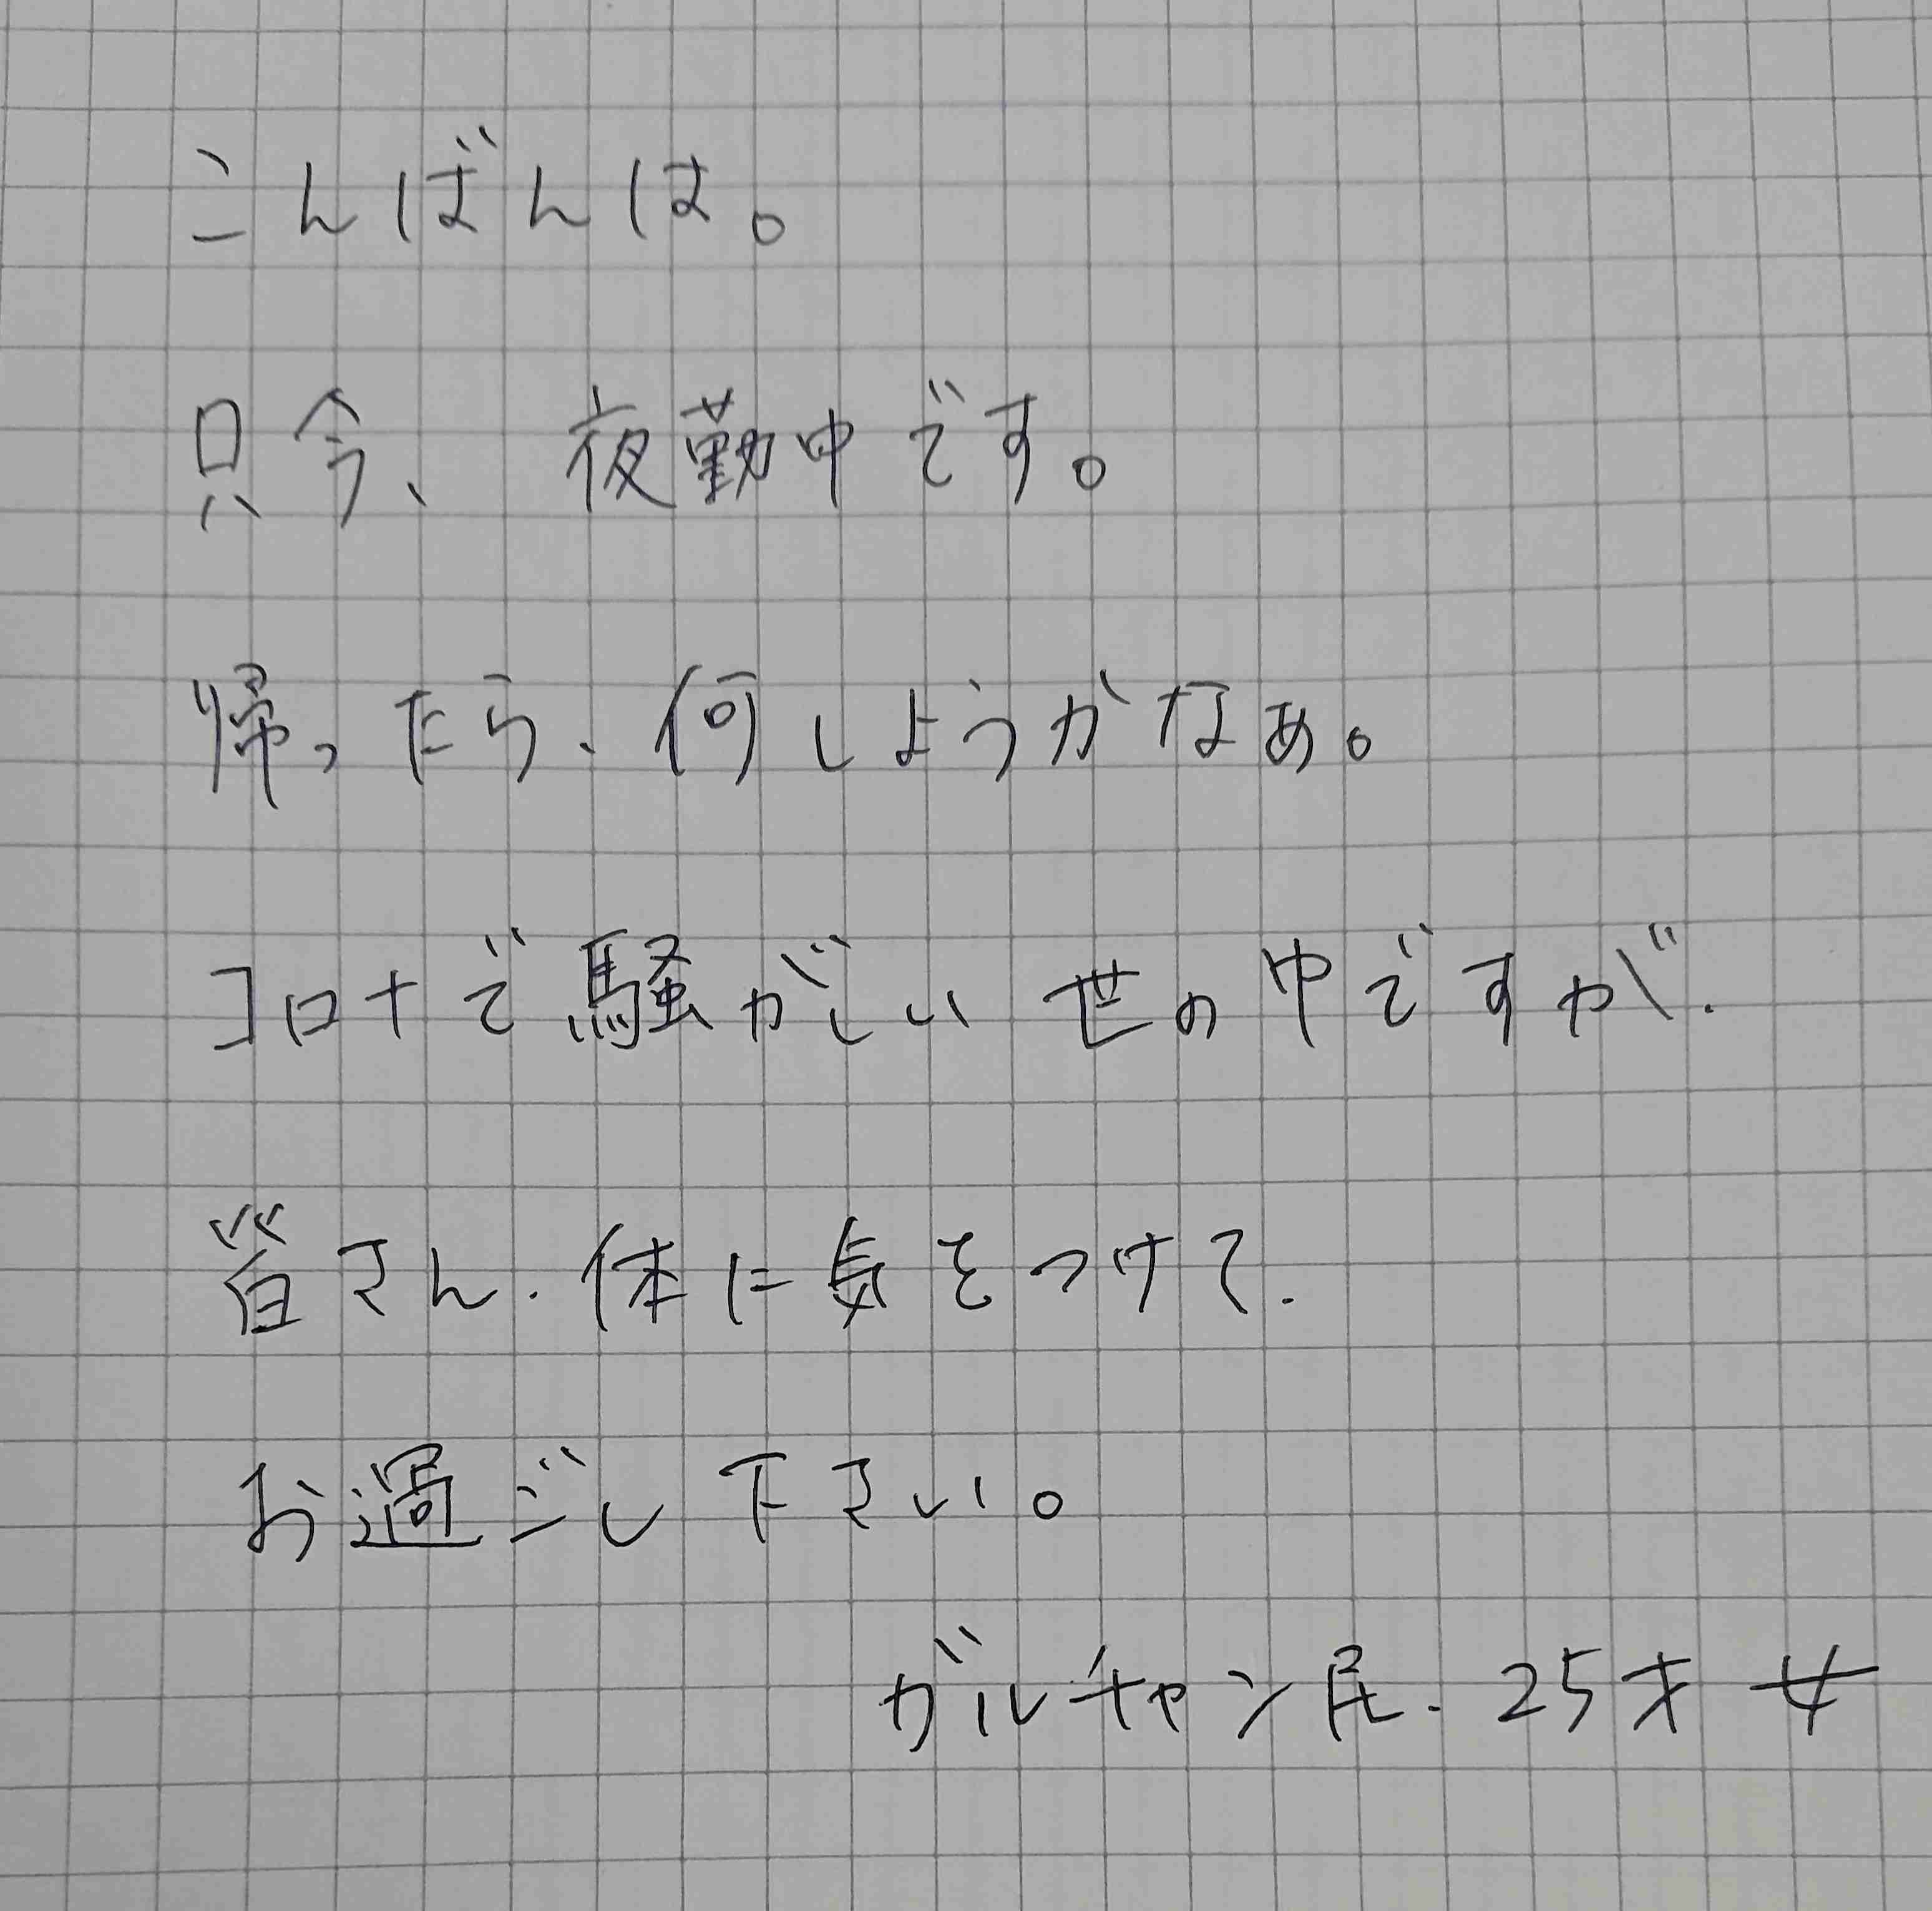 こんばんは。
只今、夜勤中です。
帰ったら、何しようかなぁ。
コロナで騒がしい世の中ですが、
皆さん、体に気をつけて、
お過ごし下さい。
ガルチャン民、25才 女